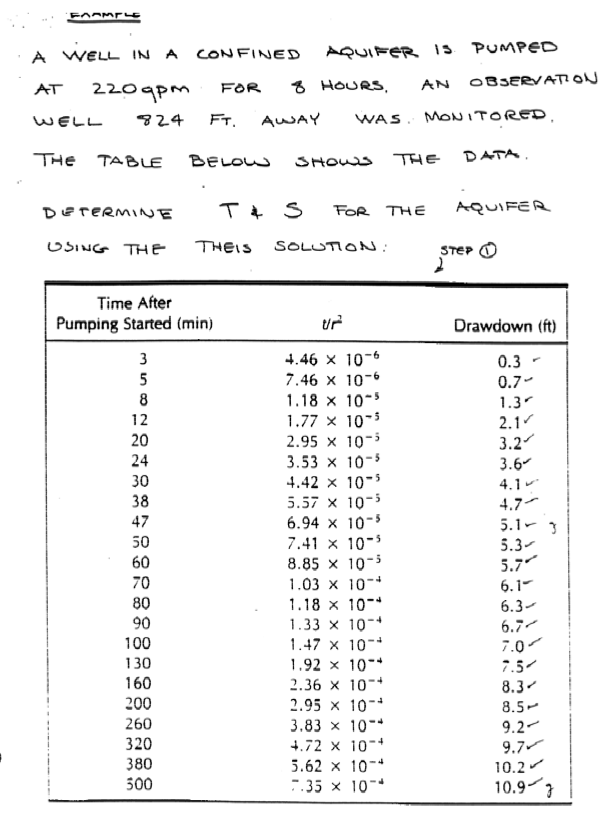 EXAMPLE
A WELL IN A CONFINED AQUIFER IS PUMPED
AT 220gpm FOR 8 HOURS. AN OBSERVATION
WELL 824 FT. AWAY WAS MONITORED.
THE TABLE BELOW SHOWS THE DATA.
DETERMINE T & S FOR THE AQUIFER
USING THE THEIS SOLUTION:
STEP ①
Time After
Pumping Started (min) t/r² Drawdown (ft)
3 4.46 × 10⁻⁶ 0.3
5 7.46 × 10⁻⁶ 0.7
8 1.18 × 10⁻⁵ 1.3
12 1.77 × 10⁻⁵ 2.1
20 2.95 × 10⁻⁵ 3.2
24 3.53 × 10⁻⁵ 3.6
30 4.42 × 10⁻⁵ 4.1
38 5.57 × 10⁻⁵ 4.7
47 6.94 × 10⁻⁵ 5.1
50 7.41 × 10⁻⁵ 5.3
60 8.85 × 10⁻⁵ 5.7
70 1.03 × 10⁻⁴ 6.1
80 1.18 × 10⁻⁴ 6.3
90 1.33 × 10⁻⁴ 6.7
100 1.47 × 10⁻⁴ 7.0
130 1.92 × 10⁻⁴ 7.5
160 2.36 × 10⁻⁴ 8.3
200 2.95 × 10⁻⁴ 8.5
260 3.83 × 10⁻⁴ 9.2
320 4.72 × 10⁻⁴ 9.7
380 5.62 × 10⁻⁴ 10.2
500 7.35 × 10⁻⁴ 10.9